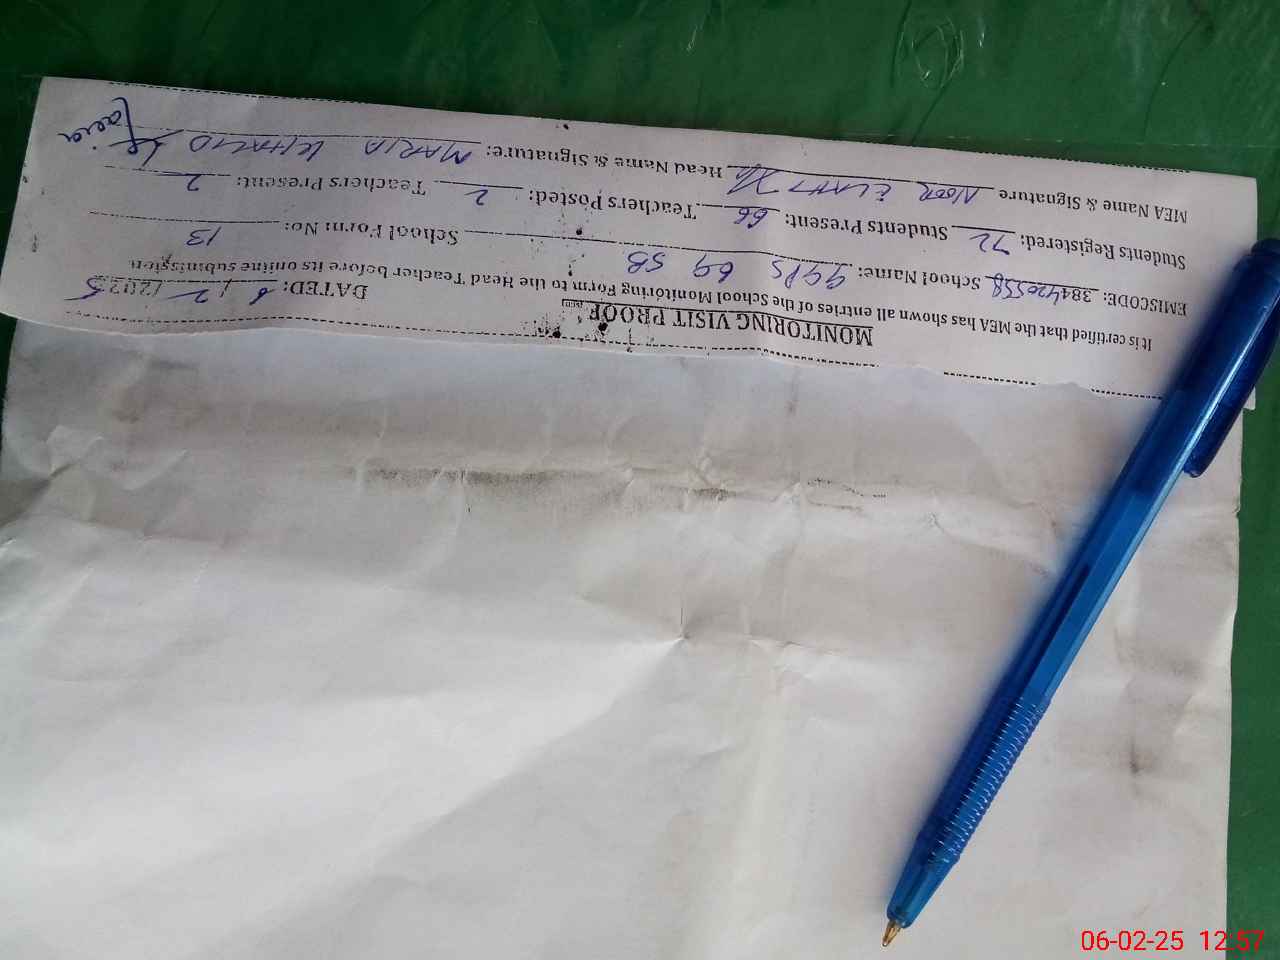 MONITORING VISIT PROOF
It is certified that the MEA has shown all entries of the School Monitoring Form to the Head Teacher before its online submission
DATED: 6 / 2 /2025
EMISCODE: 38442055 School Name: GGPS 69 SB School Form No: 13
Students Registered: 72 Students Present: 66 Teachers Posted: 2 Teachers Present: 2
MEA Name & Signature NOOR ELAHI Head Name & Signature: MARIA KHALID
06-02-25 12:57